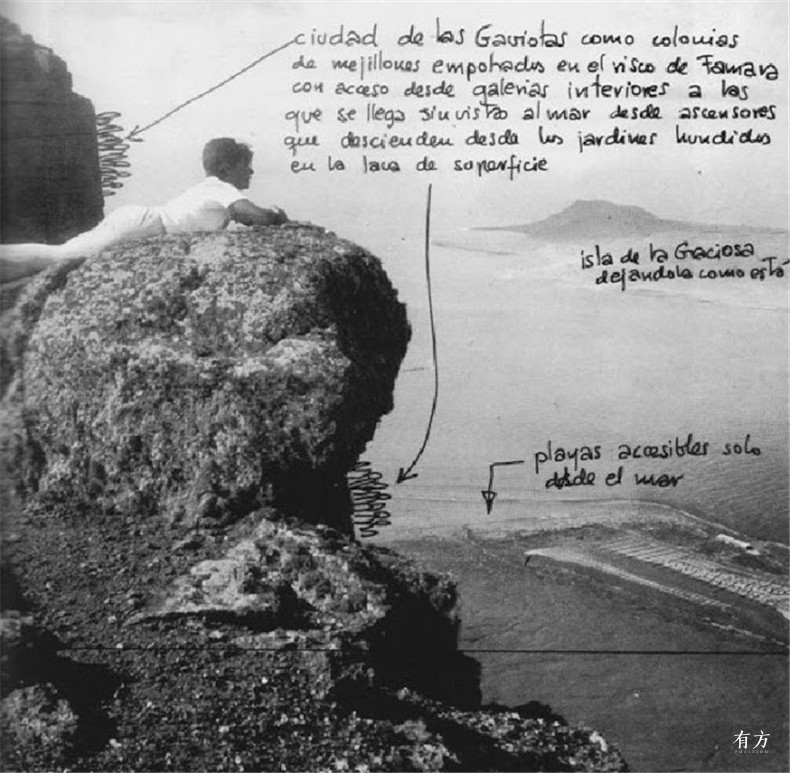 ciudad de las Gaviotas como colonias
de mejillones empotrados en el risco de Famara
con acceso desde galerias interiores a las
que se llega sin vistas al mar desde ascensores
que descienden desde los jardines hundidos
en la lava de superficie
isla de la Graciosa
dejandola como está
playas accesibles solo
desde el mar
有方
POSITION